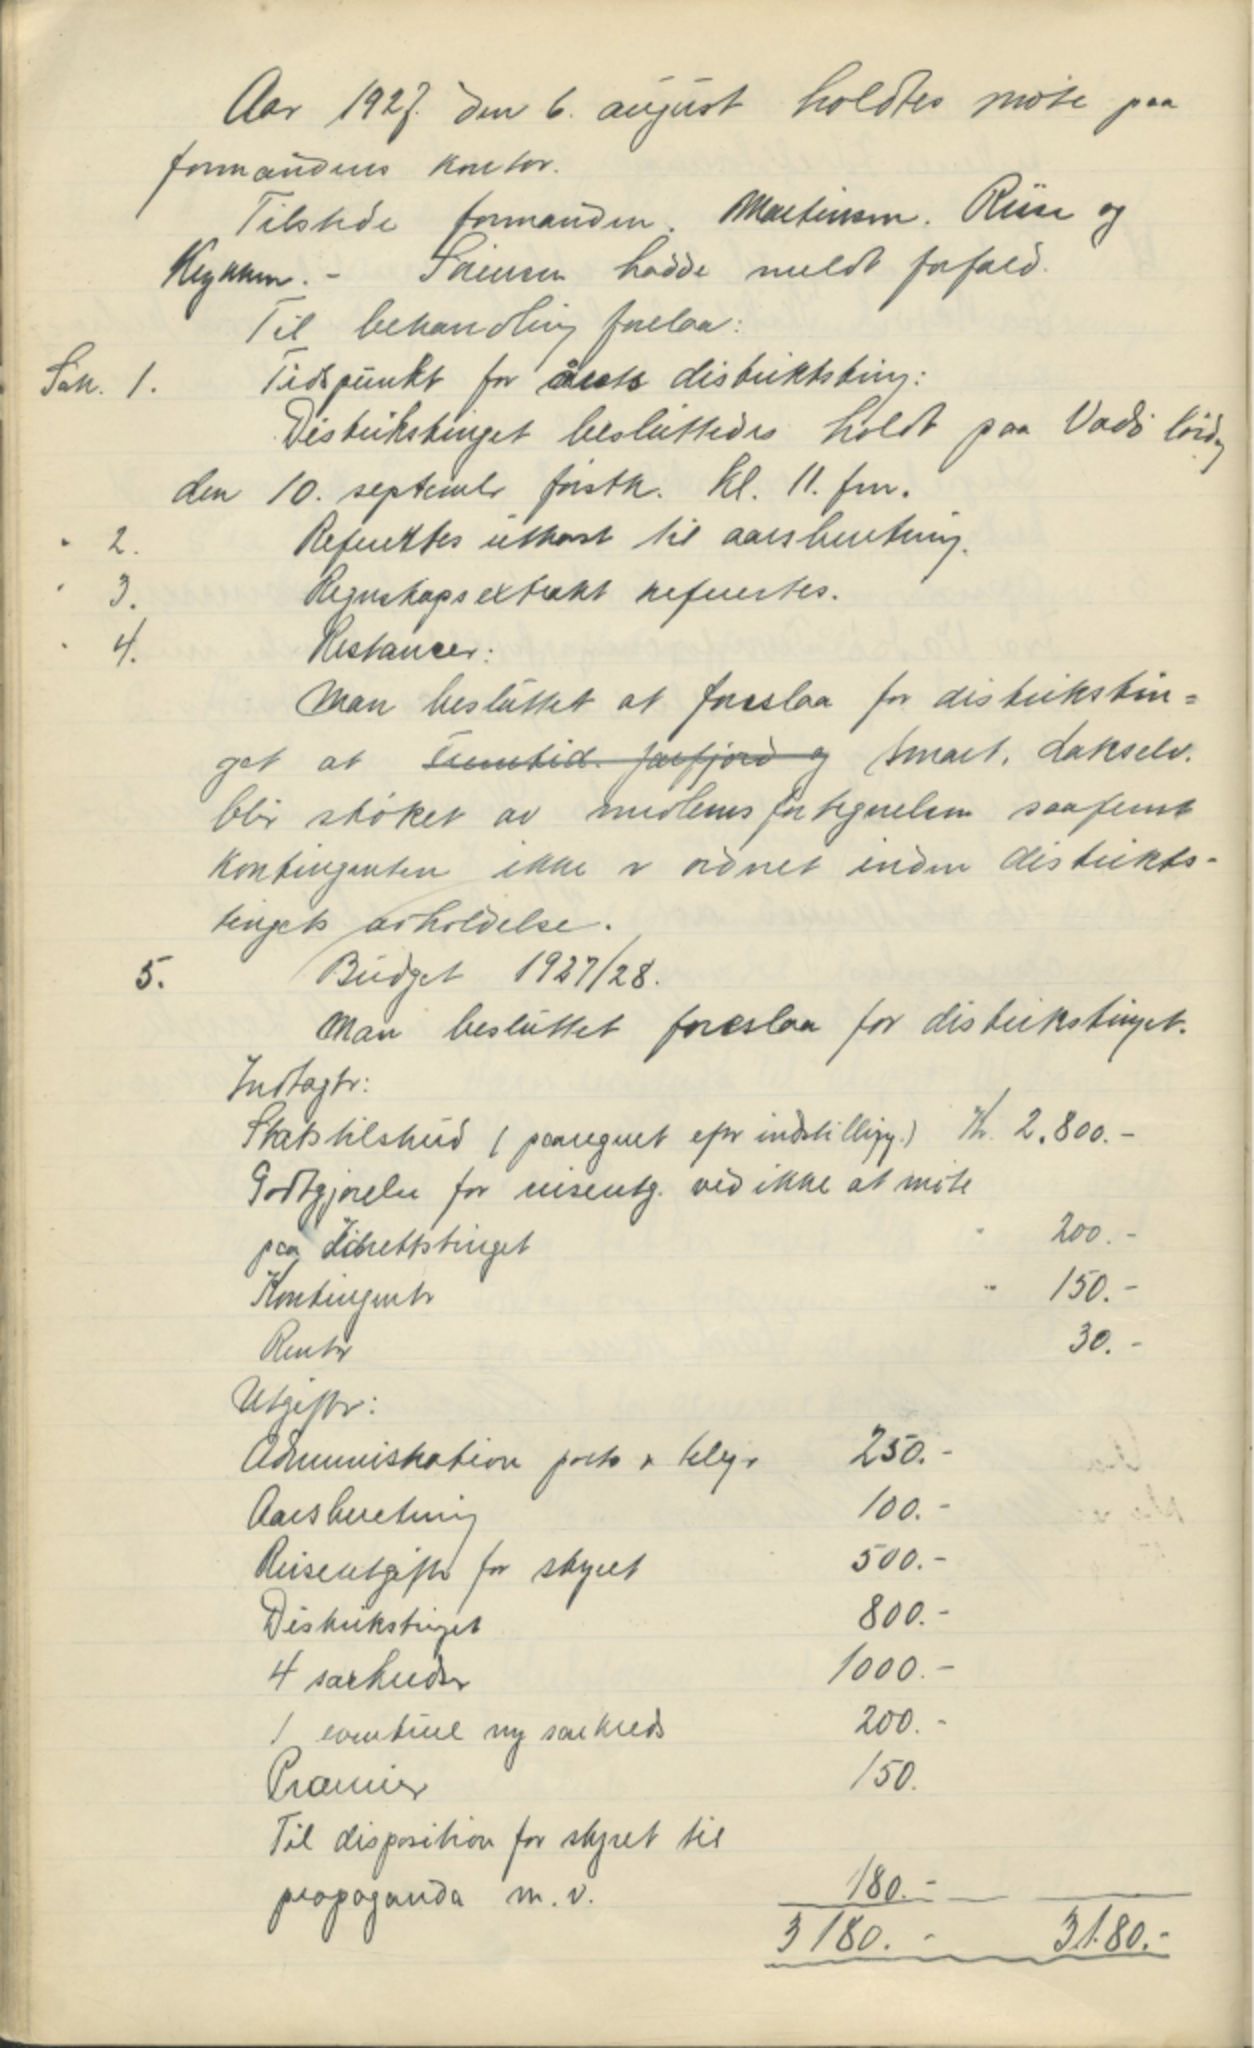 Aar 1927. den 6. august holdtes møte paa
formandens kontor.
Tilstede formanden. Martinsen. Riise og
Krykken. - Sörensen hadde meldt forfald.
Til behandling forelaa:
Sak. 1. Tidspunkt for årets distriktsting:
Distrikstinget besluttedes holdt paa Vadsö lördag
den 10. septembr förstk. kl. 11. fm.
" 2. Refertes utkast til aarsberetning.
" 3. Regnskapsextrakt refertes.
" 4. Restancer:
Man besluttet at foreslaa for distrikstin=
get at Fremtid. Jarfjord og Smart. Lakselv.
blir strøket av medlemsfortegnelsen saafremt
kontingenten ikke er ordnet inden distrikts-
tingets avholdelse.
5. Budget 1927/28.
Man besluttet foreslaa for distrikstinget.
Indtægtr:
Statstilskud (paaregnet eftr indstilling.) Kr. 2.800.-
Godtgjørelse for reiseutg. ved ikke at møte
paa Idrettstinget " 200.-
Kontingentr " 150.-
Rentr 30.-
Utgiftr:
Administration porto & telegr 250.-
Aarsberetning 100.-
Reiseutgiftr for styret 500.-
Distrikstinget 800.-
4 særkredser 1000.-
1 eventuel ny særkreds 200.-
Præmier 150.
Til disposition for styret til
propaganda m.v. 180.-
3180.- 3180.-